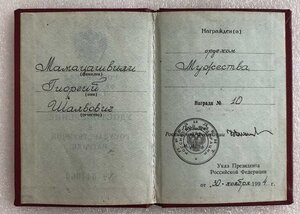 Мамацашвили
(фамилия)
Гиоргий
(имя)
Шалвович
(отчество)
Награжден(а)
орденом
Мужества
Награда № 10
Президент
Российской Федерации
Указ Президента
Российской Федерации
от "30" ноября 1994 г.